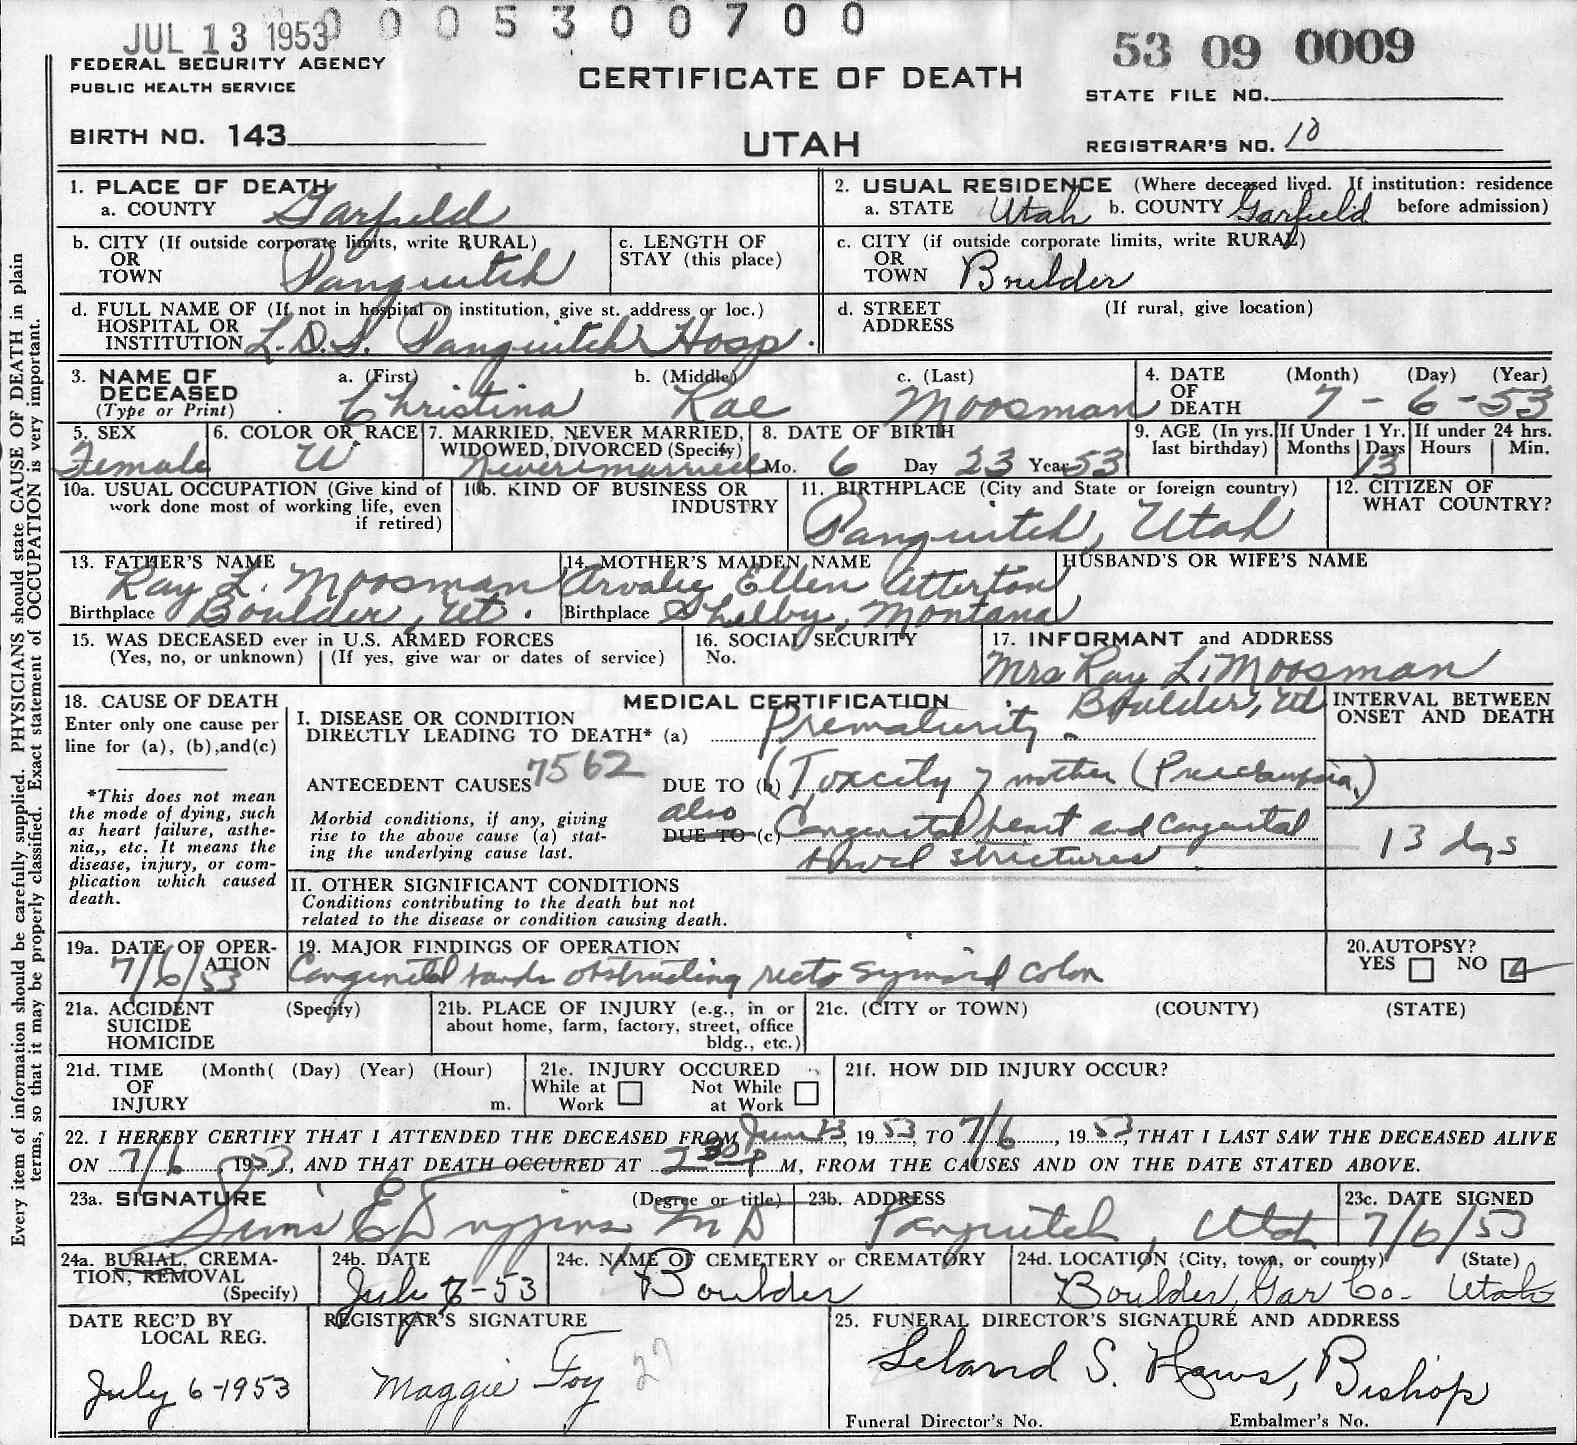 JUL 13 1953
0 0 0 5 3 0 0 7 0 0
53 09 0009
FEDERAL SECURITY AGENCY
PUBLIC HEALTH SERVICE
CERTIFICATE OF DEATH
STATE FILE NO.
BIRTH NO. 143
UTAH
REGISTRAR'S NO. 10
Every item of information should be carefully supplied. PHYSICIANS should state CAUSE OF DEATH in plain
terms, so that it may be properly classified. Exact statement of OCCUPATION is very important.
1. PLACE OF DEATH
a. COUNTY Garfield
2. USUAL RESIDENCE (Where deceased lived. If institution: residence
a. STATE Utah b. COUNTY Garfield before admission)
b. CITY (If outside corporate limits, write RURAL)
OR
TOWN Panguitch
c. LENGTH OF
STAY (this place)
c. CITY (if outside corporate limits, write RURAL)
OR
TOWN Boulder
d. FULL NAME OF (If not in hospital or institution, give st. address or loc.)
HOSPITAL OR
INSTITUTION L.D.S. Panguitch Hosp.
d. STREET (If rural, give location)
ADDRESS
3. NAME OF a. (First) b. (Middle) c. (Last)
DECEASED
(Type or Print) Christina Rae Moosman
4. DATE (Month) (Day) (Year)
OF
DEATH 7 - 6 - 53
5. SEX
Female
6. COLOR OR RACE
W
7. MARRIED, NEVER MARRIED,
WIDOWED, DIVORCED (Specify)
Never married
8. DATE OF BIRTH
Mo. 6 Day 23 Year 53
9. AGE (In yrs.
last birthday)
If Under 1 Yr.
Months Days
13
If under 24 hrs.
Hours Min.
10a. USUAL OCCUPATION (Give kind of
work done most of working life, even
if retired)
10b. KIND OF BUSINESS OR
INDUSTRY
11. BIRTHPLACE (City and State or foreign country)
Panguitch, Utah
12. CITIZEN OF
WHAT COUNTRY?
13. FATHER'S NAME
Ray L. Moosman
Birthplace Boulder, Ut.
14. MOTHER'S MAIDEN NAME
Ellen Atterton
Birthplace Shelby, Montana
HUSBAND'S OR WIFE'S NAME
15. WAS DECEASED ever in U.S. ARMED FORCES
(Yes, no, or unknown) (If yes, give war or dates of service)
16. SOCIAL SECURITY
No.
17. INFORMANT and ADDRESS
Mrs Ray L. Moosman
Boulder, Ut
18. CAUSE OF DEATH
Enter only one cause per
line for (a), (b), and (c)
*This does not mean
the mode of dying, such
as heart failure, asthe-
nia,, etc. It means the
disease, injury, or com-
plication which caused
death.
MEDICAL CERTIFICATION
I. DISEASE OR CONDITION
DIRECTLY LEADING TO DEATH* (a) Prematurity.
ANTECEDENT CAUSES 7562
DUE TO (b) (Toxcity of mother (Preeclampsia)
Morbid conditions, if any, giving
rise to the above cause (a) stat-
ing the underlying cause last.
also
DUE TO (c) Congenital heart and congenital
bowel strictures
INTERVAL BETWEEN
ONSET AND DEATH
13 dys
II. OTHER SIGNIFICANT CONDITIONS
Conditions contributing to the death but not
related to the disease or condition causing death.
19a. DATE OF OPER-
ATION
7/6/53
19. MAJOR FINDINGS OF OPERATION
Congenital bands obstructing recto sigmoid colon
20. AUTOPSY?
YES NO
21a. ACCIDENT (Specify)
SUICIDE
HOMICIDE
21b. PLACE OF INJURY (e.g., in or
about home, farm, factory, street, office
bldg., etc.)
21c. (CITY or TOWN) (COUNTY) (STATE)
21d. TIME (Month( (Day) (Year) (Hour)
OF
INJURY m.
21e. INJURY OCCURED
While at Work Not While at Work
21f. HOW DID INJURY OCCUR?
22. I HEREBY CERTIFY THAT I ATTENDED THE DECEASED FROM June 23, 1953, TO 7/6, 1953, THAT I LAST SAW THE DECEASED ALIVE
ON 7/6 1953, AND THAT DEATH OCCURED AT 2 30 P M, FROM THE CAUSES AND ON THE DATE STATED ABOVE.
23a. SIGNATURE (Degree or title)
Sims E Duggins M D
23b. ADDRESS
Panguitch, Utah
23c. DATE SIGNED
7/6/53
24a. BURIAL, CREMA-
TION, REMOVAL
(Specify)
24b. DATE
July 7-53
24c. NAME OF CEMETERY or CREMATORY
Boulder
24d. LOCATION (City, town, or county) (State)
Boulder, Gar Co. Utah
DATE REC'D BY
LOCAL REG.
July 6-1953
REGISTRAR'S SIGNATURE
Maggie Foy 27
25. FUNERAL DIRECTOR'S SIGNATURE AND ADDRESS
Leland S. Haws, Bishop
Funeral Director's No. Embalmer's No.